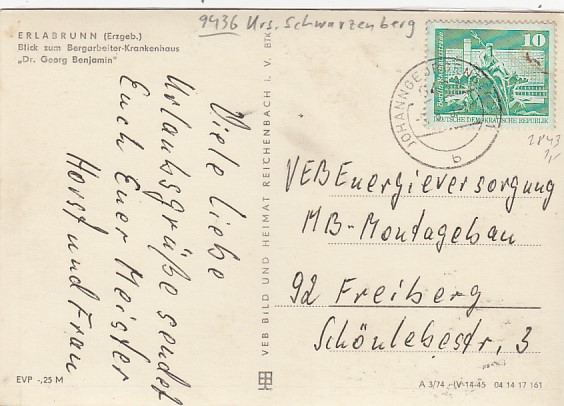 9436 Krs. Schwarzenberg
ERLABRUNN (Erzgeb.)
Blick zum Bergarbeiter-Krankenhaus
„Dr. Georg Benjamin"
Viele liebe
Urlaubsgrüße sendet
Euch Euer Meister
Horst und Frau
EVP -,25 M
VEB BILD UND HEIMAT REICHENBACH I. V. BTK
10
DEUTSCHE DEMOKRATISCHE REPUBLIK
b
VEB Energieversorgung
MB-Montagebau
92 Freiberg
Schönlebestr. 3
A 3/74 IV-14-45 04 14 17 161